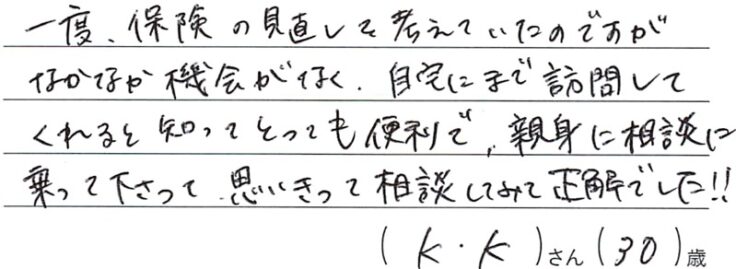 一度、保険の見直しを考えていたのですが
なかなか機会がなく、自宅にまで訪問して
くれると知ってとっても便利で、親身に相談に
乗って下さって思いきって相談してみて正解でした!!
(K・K)さん(30)歳